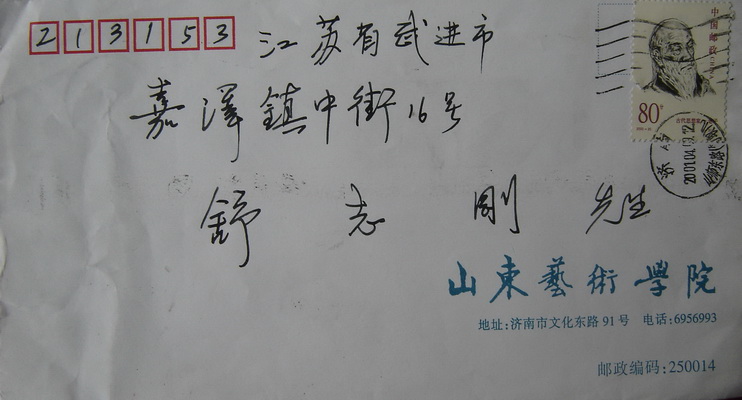 213153
江苏省武进市
嘉澤鎮中街16号
舒志刚 先生
中国邮政
80分
济南
2001.04.
山東藝術學院
地址:济南市文化东路91号 电话:6956993
邮政编码:250014